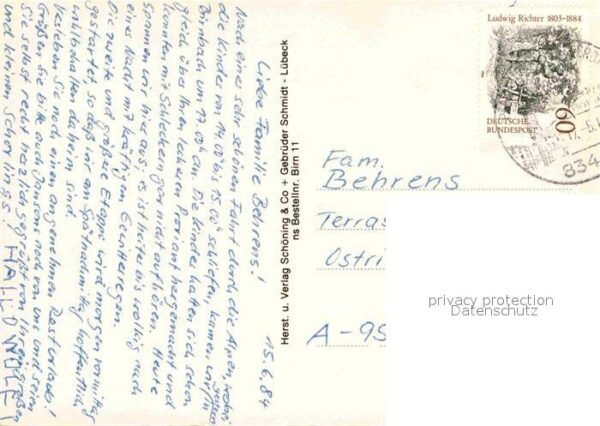 15.6.84
Liebe Familie Behrens!
Nach einer sehr schönen Fahrt durch die Alpen, wobei
die Kinder von 14.00 bis 15.00 schliefen, kamen wir in
Birnbach um 17.00 an. Die Kinder haben sich schon
gleich über Ihren leckeren Proviant hergemacht und
konnten mit Schleckern gar nicht aufhören. Heute
spannen wir hier aus, es ist hüter bis wolkig nach
einer Nacht mit kräftigem Gewitterregen.
Die zweite und größte Etappe wird morgen vormittag
gestartet, so daß wir am Spätnachmittag hoffentlich
wohlbehalten daheim sind.
Verleben Sie noch einen angenehmen Resturlaub!
Grüßen Sie bitte auch Jansons noch von uns und seien
Sie selbst recht herzlich gegrüßt von Ihren großen
und kleinen Schornings / HALLO WOLF!
Herst. u. Verlag Schöning & Co + Gebrüder Schmidt - Lübeck
ns Bestellnr. Birn 11
Ludwig Richter 1803-1884
60
DEUTSCHE
BUNDESPOST
834
Fam.
Behrens
Terras
Ostri
A-95
privacy protection
Datenschutz